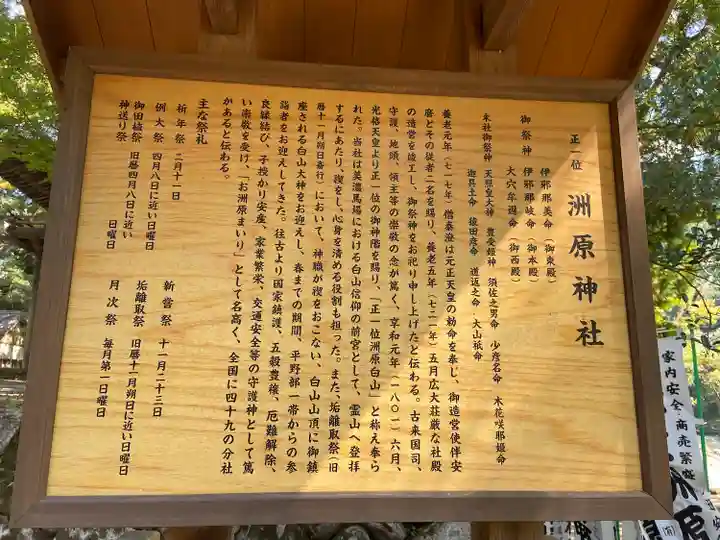 正一位 洲原神社
御祭神 伊邪那美命(御東殿)
伊邪那岐命(御本殿)
大穴遅命(御西殿)
末社御祭神 天照皇大神 豊受姫神 須佐之男命 少彦名命 木花咲耶姫命
迦具土命 猿田彦命 道返之命 大山祇命
養老元年(七一七年)僧泰澄は元正天皇の勅命を奉じ、御造営使伴安
麿とその従者二名を賜り、養老五年(七二一年)五月広大荘厳な社殿
の造営を竣工し、御祭神をお祀り申し上げたと伝わる。古来国司、
守護、地頭、領主等の崇敬の念が篤く、享和元年(一八〇一)六月、
光格天皇より正一位の御神階を賜り、「正一位洲原白山」と称え奉ら
れた。当社は美濃馬場における白山信仰の前宮として、霊山へ登拝
するにあたり禊をし、心身を清める役割も担った。また、垢離取祭(旧
暦十一月朔日斎行)において、神職が禊をおこない、白山山頂に御鎮
座される白山大神をお迎えし、春までの期間、平野部一帯からの参
詣者をお迎えしてきた。往古より国家鎮護、五穀豊穣、厄難解除、
良縁結び、子授かり安産、家業繁栄、交通安全等の守護神として篤
い崇敬を受け、「お洲原まいり」として名高く、全国に四十九の分社
があると伝わる。
主な祭礼
祈年祭 二月十一日
例大祭 四月八日に近い日曜日
御田植祭 旧暦四月八日に近い
神送り祭 日曜日
新嘗祭 十一月二十三日
垢離取祭 旧暦十一月朔日に近い日曜日
月次祭 毎月第一日曜日
家内安全・商売繁盛